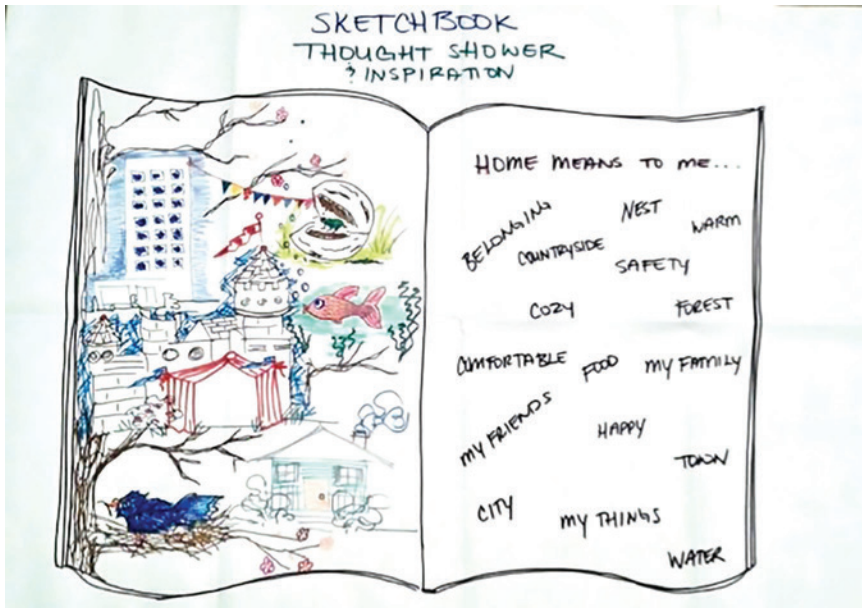 SKETCHBOOK
THOUGHT SHOWER
& INSPIRATION
HOME MEANS TO ME...
BELONGING
NEST
WARM
COUNTRYSIDE
SAFETY
COZY
FOREST
COMFORTABLE
FOOD
MY FAMILY
MY FRIENDS
HAPPY
TOWN
CITY
MY THINGS
WATER